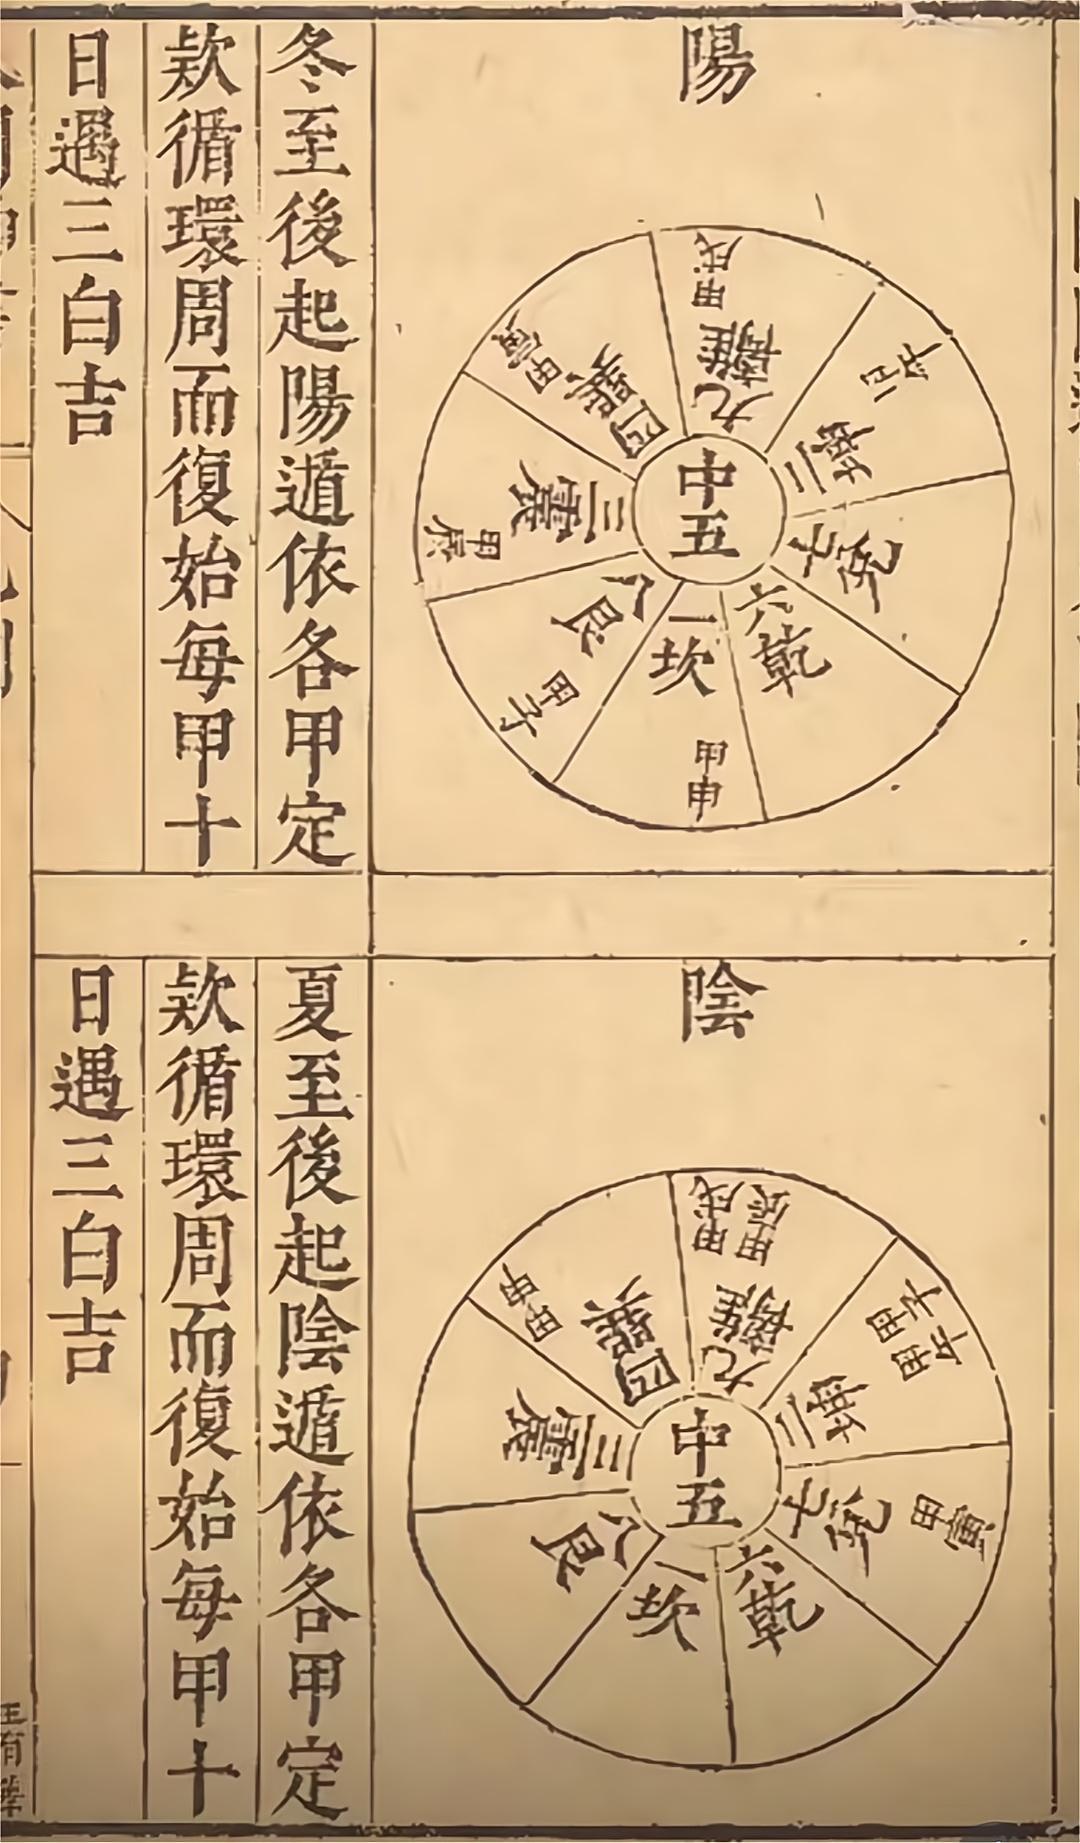 陽
中五
甲戌
離九
坤二
兌七
六乾
一坎
甲申
艮八
甲子
震三
甲辰
巽四
甲寅
冬至後起陽遁依各甲定
欵循環周而復始每甲十
日遇三白吉
陰
中五
甲戌
甲辰
離九
甲子
甲午
坤二
甲寅
兌七
六乾
一坎
艮八
震三
巽四
甲申
夏至後起陰遁依各甲定
欵循環周而復始每甲十
日遇三白吉